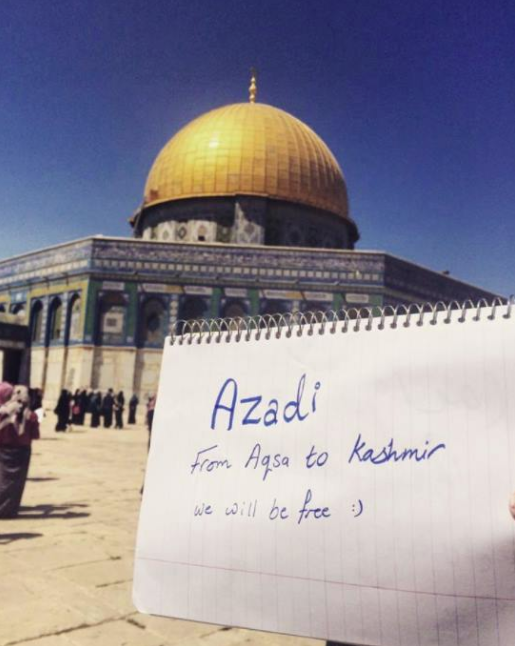 Azadi
From Aqsa to Kashmir
we will be free :)